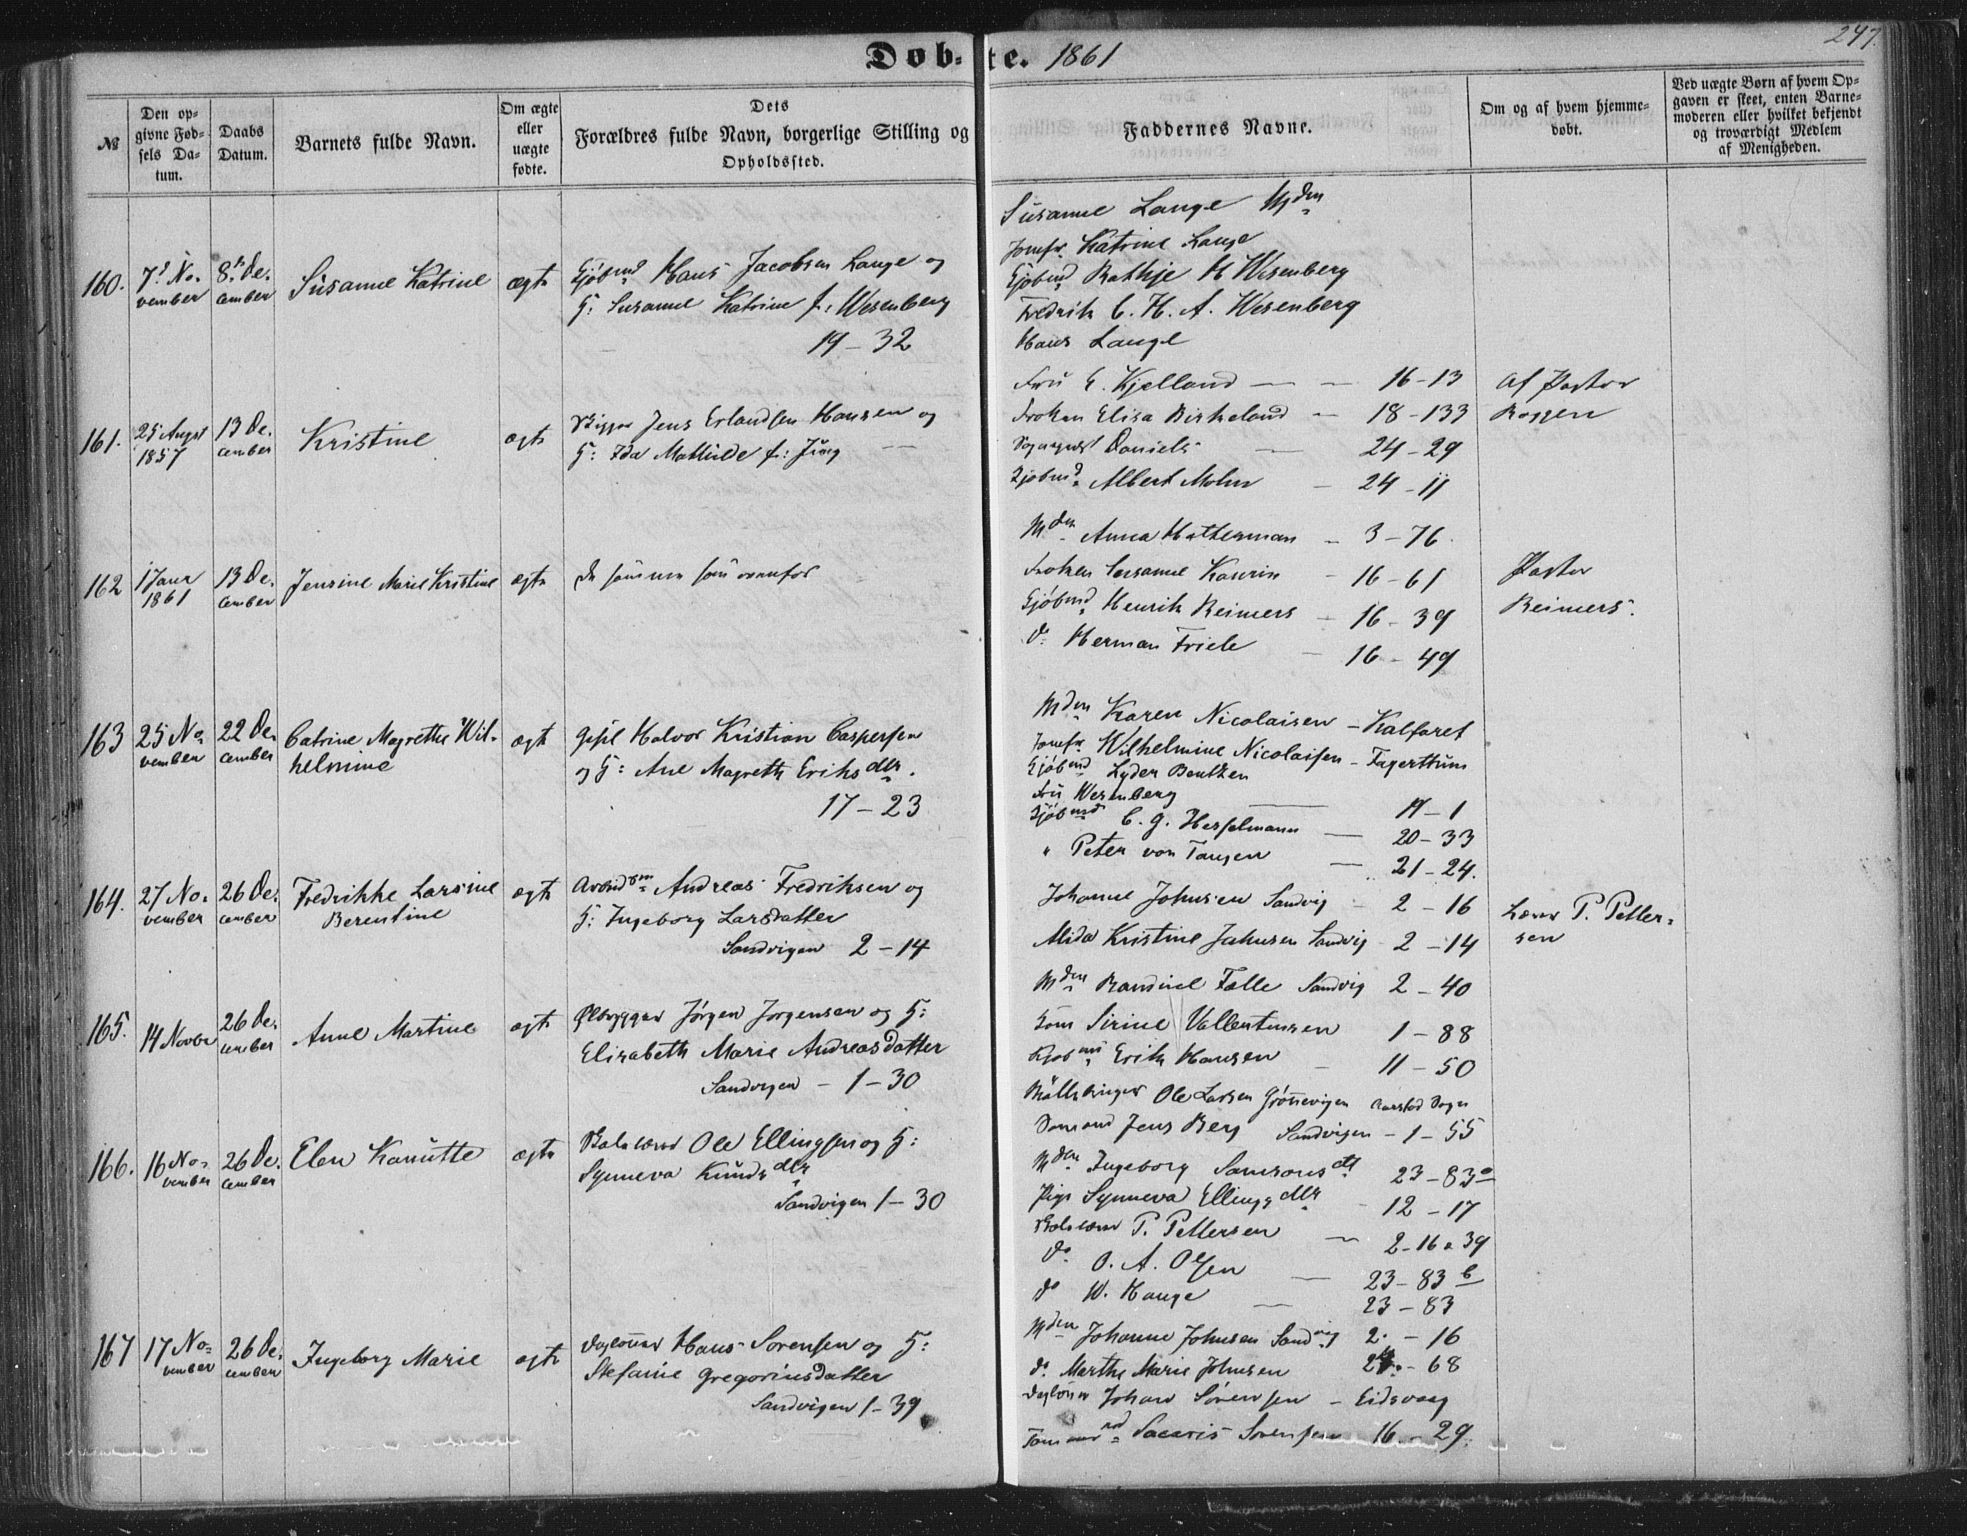 247.
Døb-te. 1861
№
Den op-
givne Fød-
sels Da-
tum.
Daabs
Datum.
Barnets fulde Navn.
Om ægte
eller
uægte
fødte.
Dets
Forældres fulde Navn, borgerlige Stilling og
Opholdssted.
Faddernes Navne.
Om og af hvem hjemme-
døbt.
Ved uægte Børn af hvem Op-
gaven er skeet, enten Barne-
moderen eller hvilket bekjendt
og troværdigt Medlem
af Menigheden.
160.
7d No-
vember
8n De-
cember
Susanne Katrine
ægte
Kjøbmd Hans Jacobsen Lange og
H: Susanne Katrine f: Wesenberg
19 - 32
Susanne Lange Mden
Jomfr Katrine Lange
Kjøbmd Rathje H Wesenberg
Fredrik C. H. A. Wesenberg
Hans Lange
161.
25 Augst
1857
13 De-
cember
Kristine
ægte
Skipper Jens Erlandsen Hansen og
H: Ida Mathilde f: Jung
Fru E. Kjelland - 16-13
Frøken Elisa Birkeland - 18-133
Daniels - 24-29
Kjøbmd Albert Mohn - 24-11
Af Pastor
Roggen
162
1861
13 De-
cember
Jensine Marie Kristine
ægte
De samme som ovenfor
Mden Anna Hatterman - 3-76
Frøken Susanne Kavrin - 16-61
Kjøbmd Henrik Reimers - 16-39
do Herman Friele - 16-49
Pastor
Reimers.
163
25 No-
vember
22 De-
cember
Catrine Magrethe Wil-
helmine
ægte
Halvor Kristian Caspersen
og H: Ane Magreth Eriksdtr.
17 - 23
Mden Karen Nicolaisen - Kalfaret
Jomfr Wilhelmine Nicolaisen - Fagerttun
Kjøbmd Lyder Bentzen
Fru Wesenberg - 19-1
Kjøbmd C. G. Hesselmann - 20-33
" Peter von Tangen - 21-24.
164.
27 No-
vember
26 De-
cember
Fredrikke Larsine
Berentine
ægte
Andreas Fredriksen og
H: Ingeborg Larsdatter
Sandvigen 2-14
Johanne Johnsen Sandvig - 2-16
Alida Kristine Johnsen Sandvig 2-14
Mden Randine Falle Sandvig 2-40
Lærer P. Petter-
sen
165.
14 Novbr
26 De-
cember
Anne Martine
ægte
Jørgen Jørgensen og H:
Elisabeth Marie Andreasdatter
Sandvigen - 1-30
Jomf Sirine Vallentinsen 1-88
Kjøbmd Erik Hansen - 11-50
Ole Larsen Grønnevigen Aarstad Sogn
Sømand Jens Berg Sandvigen - 1-55
166.
16 No-
vember
26 De-
cember
Elen Kanutte
ægte
Skolelærer Ole Ellingsen og H:
Synneva Knudsdtr
Sandvigen 1-30
Mden Ingeborg Samsonsdtr 23-83a
Pige Synneva Ellingsdtr - 12-17
Skolelærer P. Pettersen - 2-16 & 39
do O. A. Olsen - 23-83 b
do W. Hauge - 23-83
167
17 No-
vember
26 De-
cember
Ingeborg Marie
ægte
Dagløner Hans Sørensen og H:
Stefanie Gregoriusdatter
Sandvigen 1-39
Mden Johanne Johnsen Sandvig 2-16
do Marthe Marie Johnsen - 68
Dagløner Johan Sørensen - Eidsvaag
Sørensen 16-29.